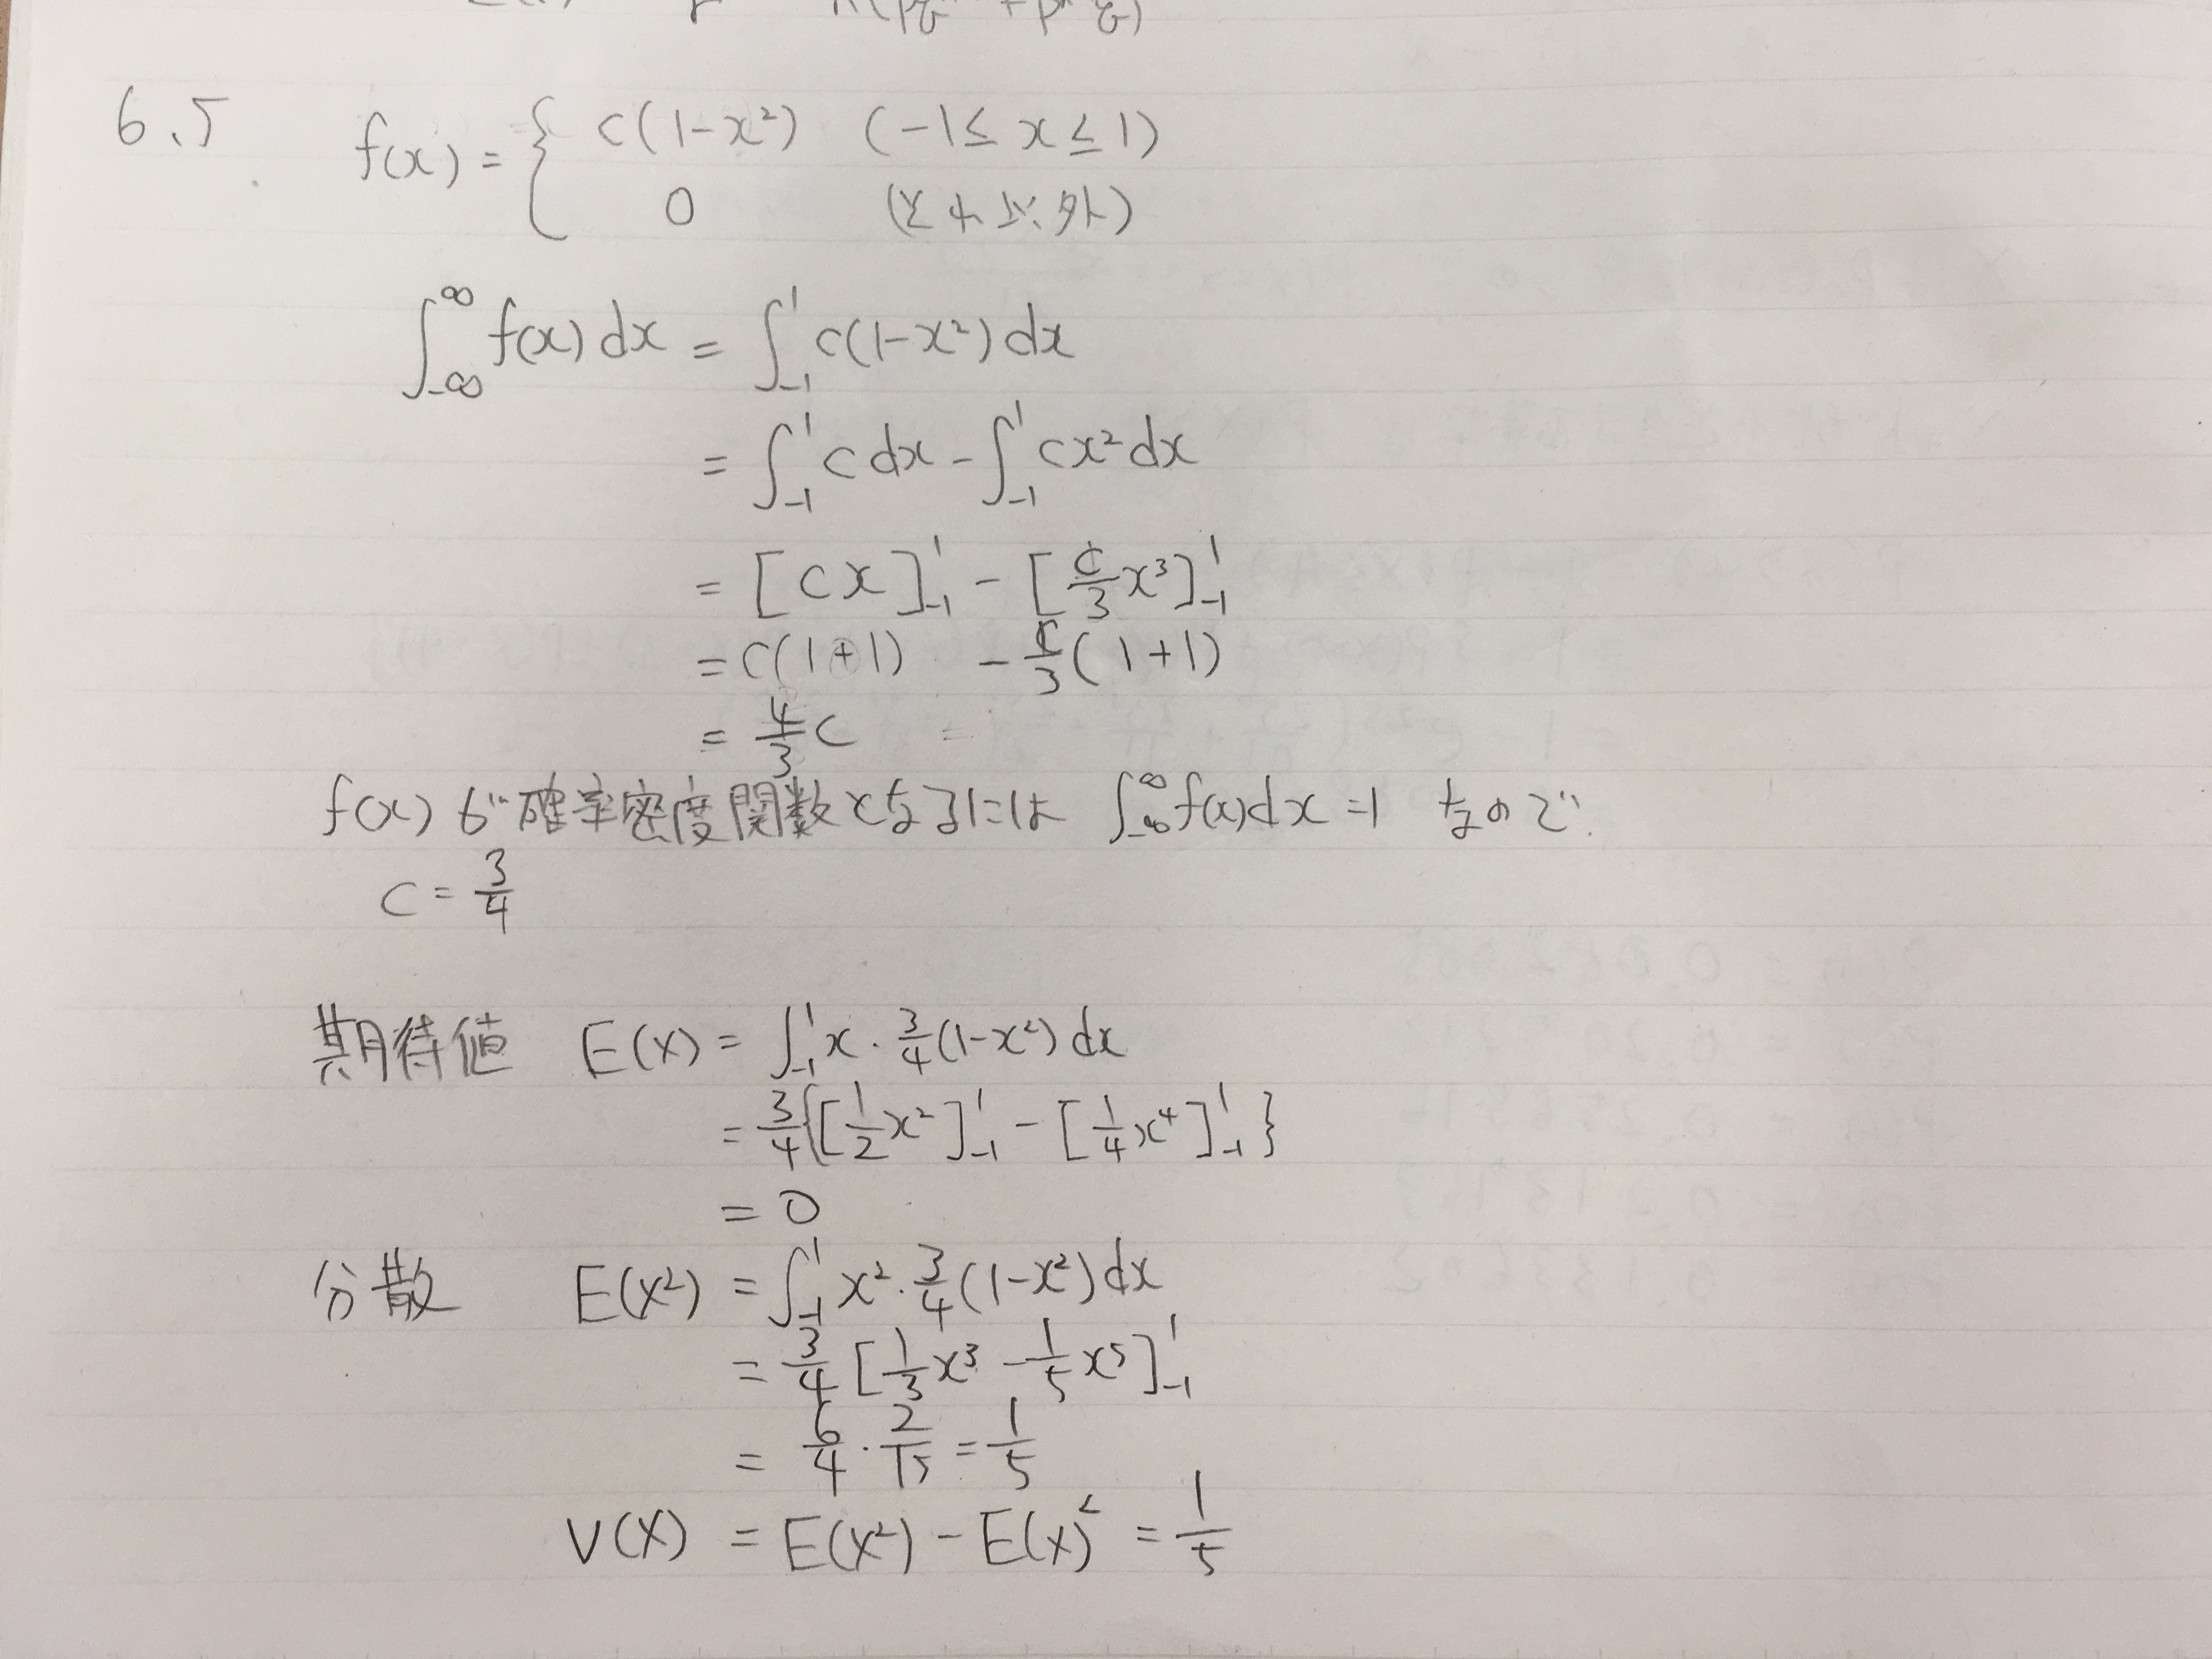 6.5 f(x) = { c(1-x²) (-1≤ x ≤1)
0 (それ以外)
∫_{-∞}^{∞} f(x)dx = ∫_{-1}^{1} c(1-x²)dx
= ∫_{-1}^{1} c dx - ∫_{-1}^{1} cx² dx
= [cx]_{-1}^{1} - [c/3 x³]_{-1}^{1}
= c(1+1) - c/3 (1+1)
= 4/3 c
f(x) が確率密度関数となるには ∫_{-∞}^{∞} f(x)dx =1 なので
c = 3/4
期待値 E(X) = ∫_{-1}^{1} x · 3/4 (1-x²) dx
= 3/4 {[1/2 x²]_{-1}^{1} - [1/4 x⁴]_{-1}^{1}}
= 0
分散 E(X²) = ∫_{-1}^{1} x² · 3/4 (1-x²) dx
= 3/4 [1/3 x³ - 1/5 x⁵]_{-1}^{1}
= 6/4 · 2/15 = 1/5
V(X) = E(X²) - E(X)² = 1/5